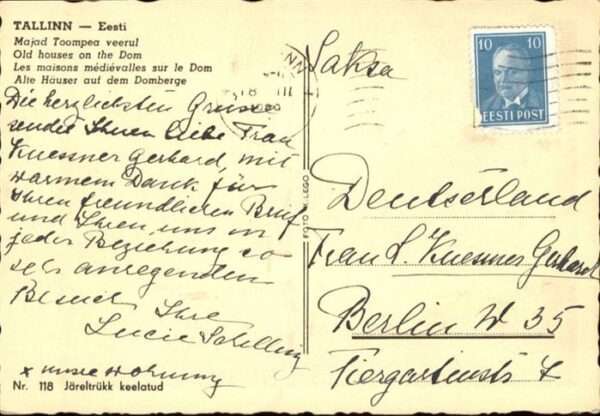 TALLINN — Eesti
Majad Toompea veerul
Old houses on the Dom
Les maisons médiévalles sur le Dom
Alte Häuser auf dem Domberge
Die herzlichsten Grüsse
sendet Ihnen liebe Frau
Kuessner Gerhard, mit
warmem Dank für
Ihren freundlichen Brief
und Ihren, uns in
jeder Beziehung so
sehr anregenden
Besuch Ihre
Lucie Schilling
x unsere Wohnung
Nr. 118 Järeltrükk keelatud
FOTO
Saksa
10 10
EESTI POST
Deutschland
Frau L. Kuessner Gerhard
Berlin W 35
Tiergartenstr 4